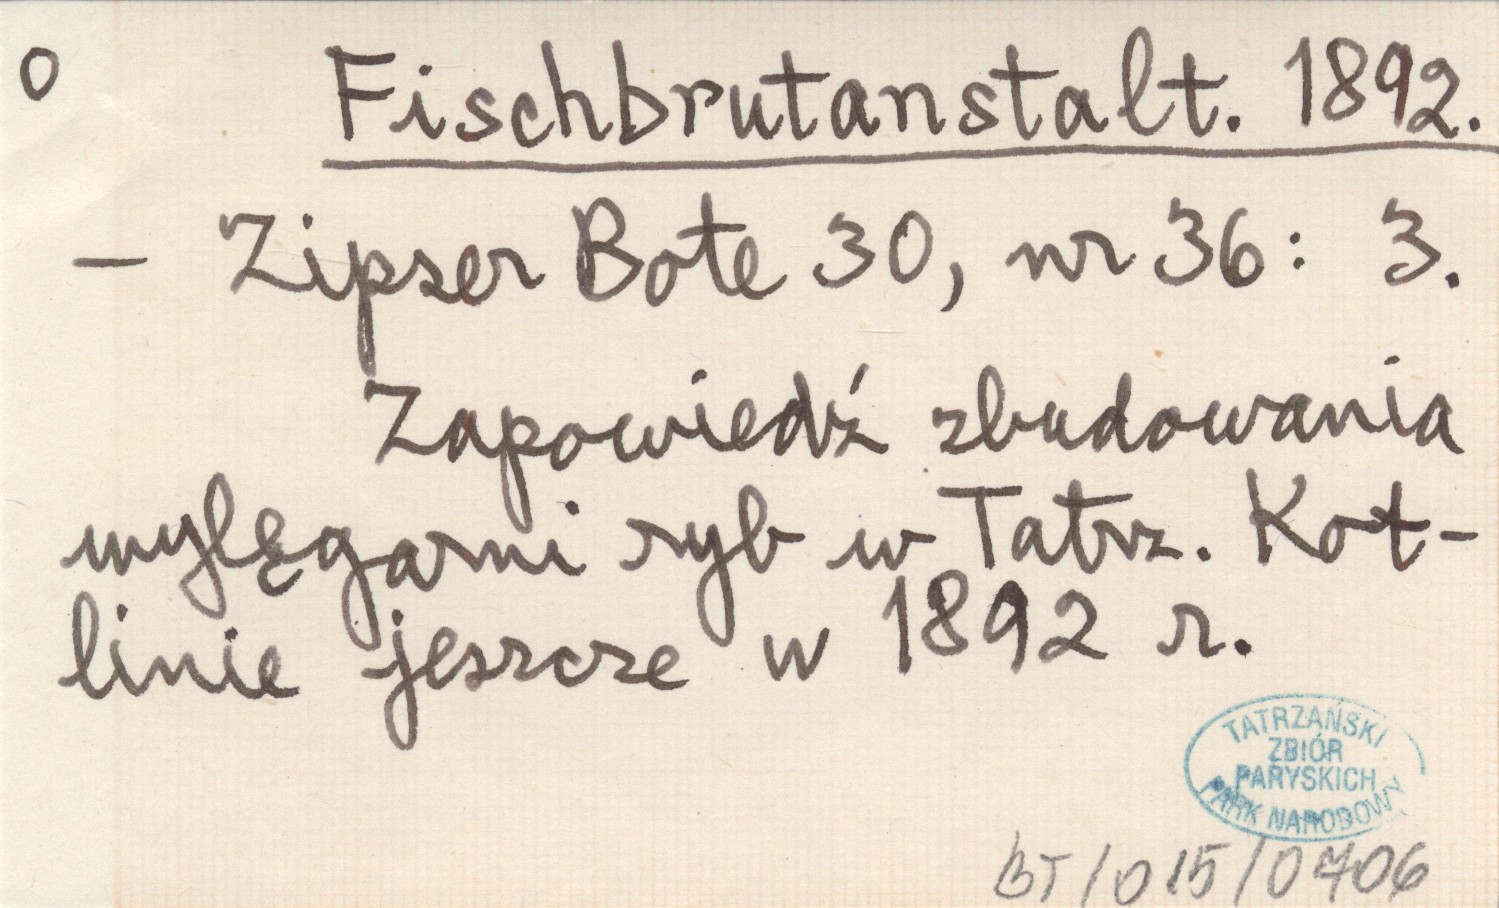 o Fischbrutanstalt. 1892.
– Zipser Bote 30, nr 36: 3.
Zapowiedź zbudowania
wylęgarni ryb w Tatrz. Kot-
linie jeszcze w 1892 r.
TATRZAŃSKI
ZBIÓR
PARYSKICH
PARK NARODOWY
BT/015/0706